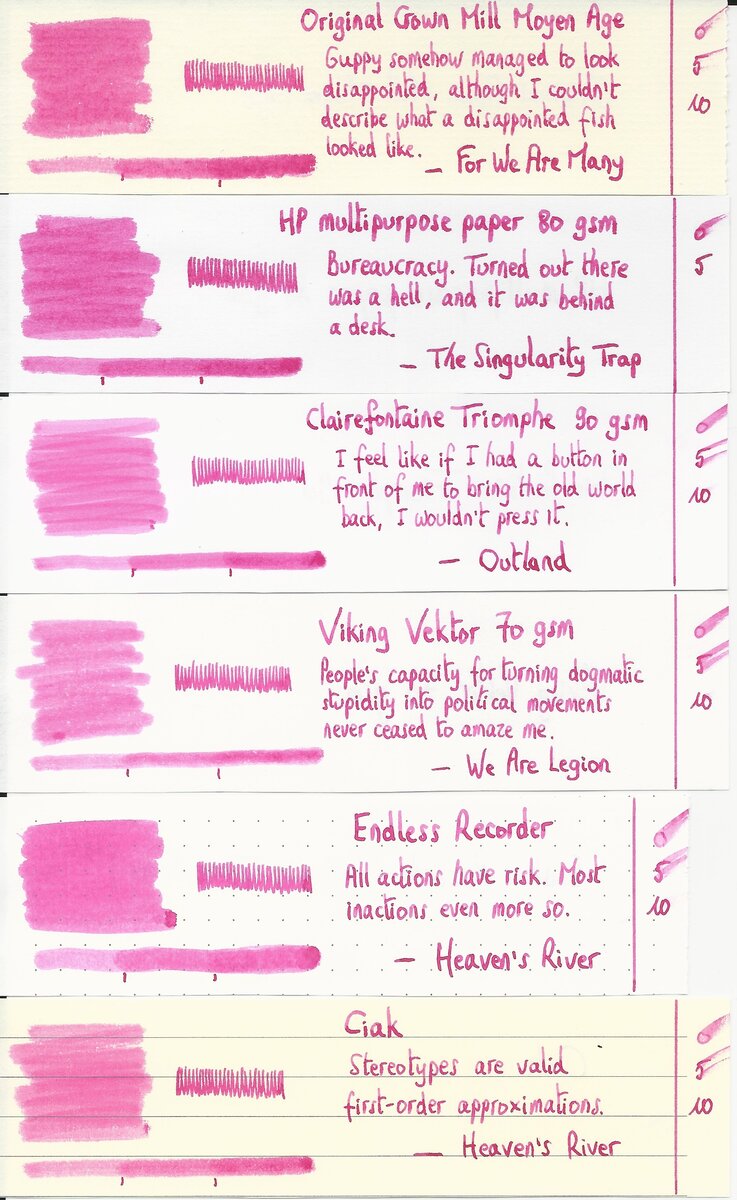 Original Crown Mill Moyen Age
Guppy somehow managed to look
disappointed, although I couldn't
describe what a disappointed fish
looked like.
— For We Are Many
0
5
10
HP multipurpose paper 80 gsm
Bureaucracy. Turned out there
was a hell, and it was behind
a desk.
— The Singularity Trap
0
5
Clairefontaine Triomphe 90 gsm
I feel like if I had a button in
front of me to bring the old world
back, I wouldn't press it.
— Outland
0
5
10
Viking Vektor 70 gsm
People's capacity for turning dogmatic
stupidity into political movements
never ceased to amaze me.
— We Are Legion
0
5
10
Endless Recorder
All actions have risk. Most
inactions even more so.
— Heaven's River
0
5
10
Ciak
Stereotypes are valid
first-order approximations.
— Heaven's River
0
5
10